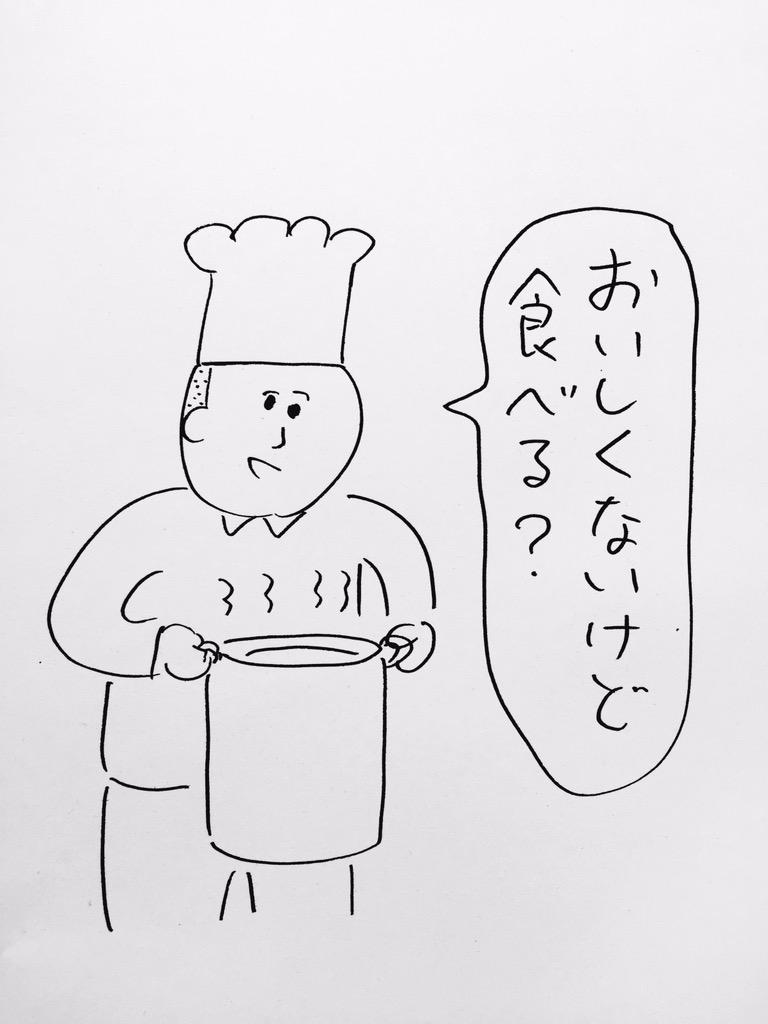 おいしくないけど
食べる?